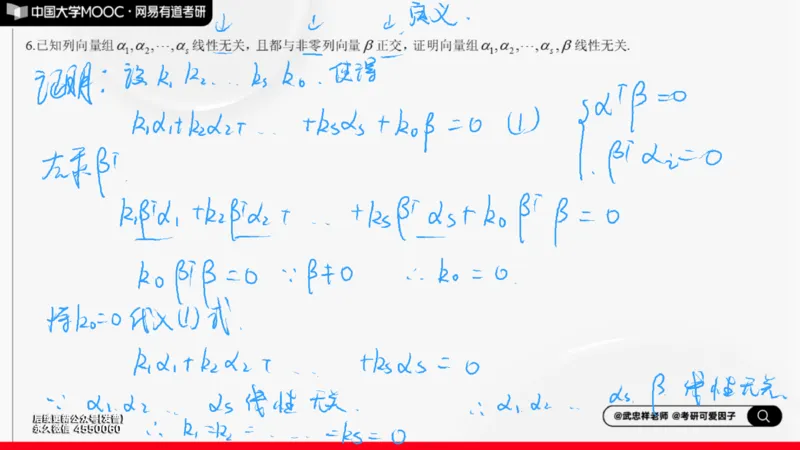 中国大学MOOC·网易有道考研
↓ ↓ ↓ 定义.
6.已知列向量组α₁,α₂,⋯,αₛ线性无关，且都与非零列向量β正交，证明向量组α₁,α₂,⋯,αₛ,β线性无关.
证明：设 k₁ k₂ ... kₛ k₀. 使得
k₁α₁+k₂α₂+ ... +kₛαₛ+k₀β=0 (1)
{ αᵀβ=0
βᵀαᵢ=0
左乘βᵀ.
k₁βᵀα₁+k₂βᵀα₂+ ... +kₛβᵀαₛ+k₀βᵀβ=0
k₀βᵀβ=0 ∵β≠0 ∴k₀=0.
将k₀=0代入(1)式.
k₁α₁+k₂α₂+ ... +kₛαₛ=0
∵ α₁.α₂ ... αₛ线性无关. ∴ α₁.α₂ ... αₛ.β线性无关.
∴ k₁=k₂= ... =kₛ=0
后续更新公众号【发普】
永久微信 4550060
@武忠祥老师 @考研可爱因子